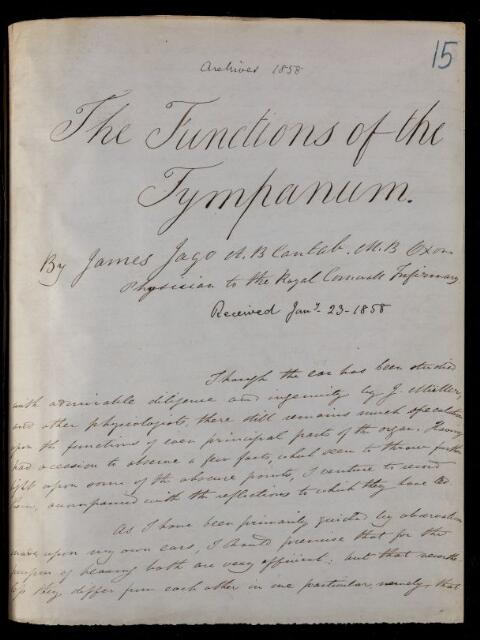 15
Archives 1858
The Functions of the
Tympanum.
By James Jago A.B Cantab. M.B Oxon
Physician to the Royal Cornwall Infirmary
Received Jany. 23-1858
Though the ear has been studied
with admirable diligence and ingenuity by J. Müller,
and other physiologists, there still remains much speculation
upon the functions of even principal parts of the organ. Having
had occasion to observe a few facts, which seem to throw further
light upon some of the obscure points, I venture to send
them, accompanied with the reflections to which they have led.
As I have been primarily guided by observations
made upon my own ears, I should premise that for the
purpose of hearing both are very efficient; but that
they differ from each other in one particular, namely, that